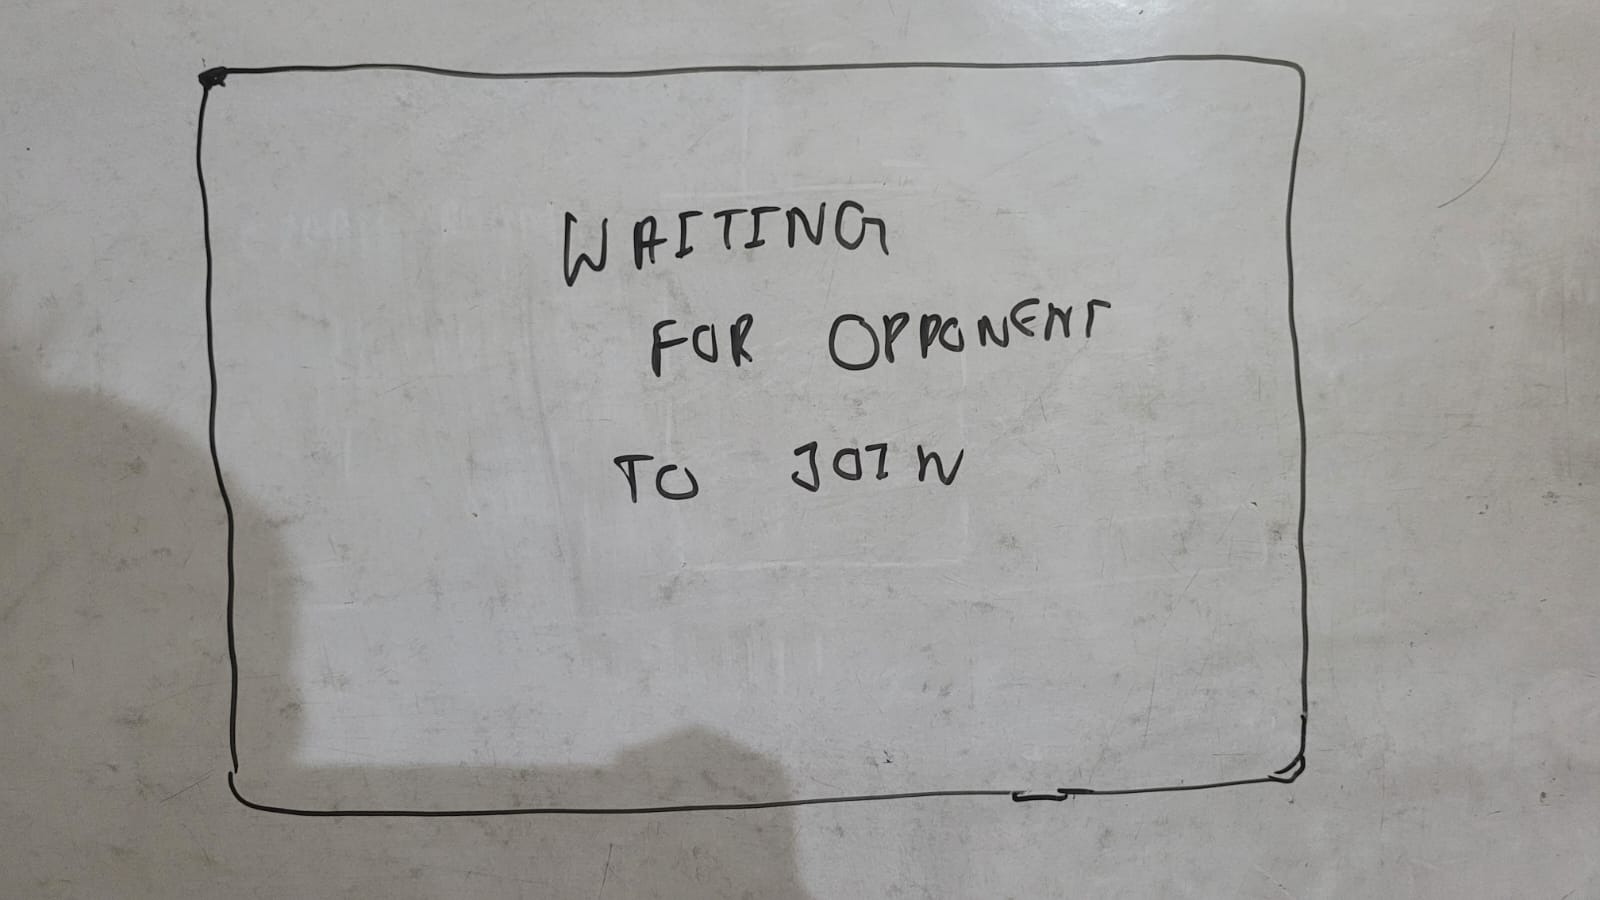 WAITING
FOR OPPONENT
TO JOIN